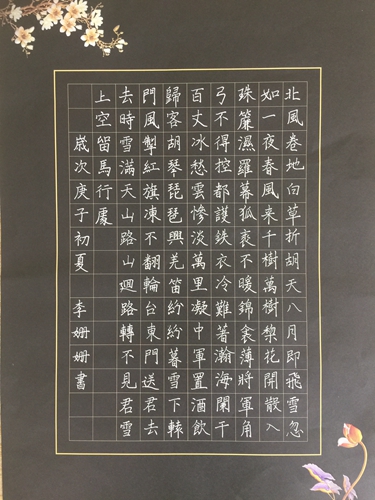 北風卷地白草折胡天八月即飛雪忽
如一夜春風来千樹萬樹梨花開散入
珠簾濕羅幕狐裘不暖錦衾薄將軍角
弓不得控都護鉄衣冷難著瀚海闌干
百丈冰愁雲慘淡萬里凝中軍置酒飲
歸客胡琴琵琶與羌笛紛紛暮雪下轅
門風掣紅旗凍不翻輪台東門送君去
去時雪滿天山路山迴路轉不見君雪
上空留馬行處
嵗次庚子初夏 李姍姍書